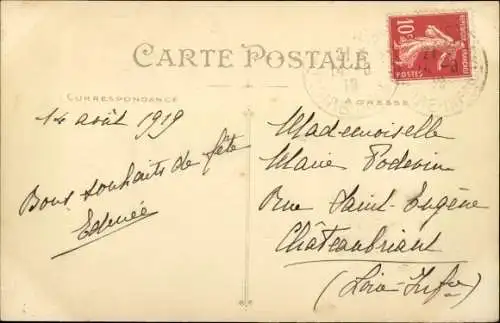 CARTE POSTALE
10c
POSTES
CORRESPONDANCE
ADRESSE
14 août 1919
Bons souhaits de fête
Edmée
Mademoiselle
Marie Podevin
Rue Saint-Eugène
Châteaubriant
(Loire-Infre)